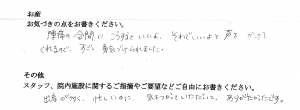 お産
お気づきの点をお書きください。
陣痛の合間に こうするといいよ、それでいいよと 声をかけて
くれるので、すごく 勇気づけられました。
その他
スタッフ、院内施設に関するご指摘やご要望などご自由にお書きください。
出産が多く、忙しいのに、気をつかっていただいて、ありがたかったです。